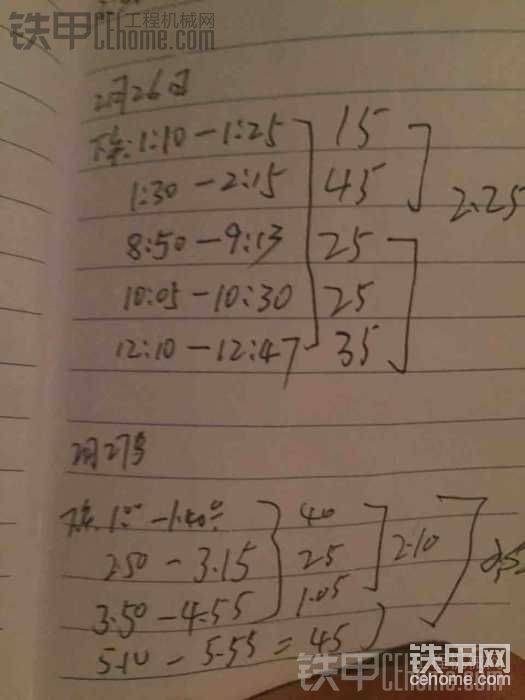 铁甲 工程机械网 Cehome.com
2月26日
下午:1:10-1:25 15
1:30-2:15 45
2.25
8:50-9:13 25
10:05-10:30 25
12:10-12:47 35
2月27号
下午.1:00-1:40 40
2.50-3.15 25 2.10
3.50-4.55 1.05
5.10-5.55=45
铁甲 工程机械网 Cehome.com
铁甲网
cehome.com